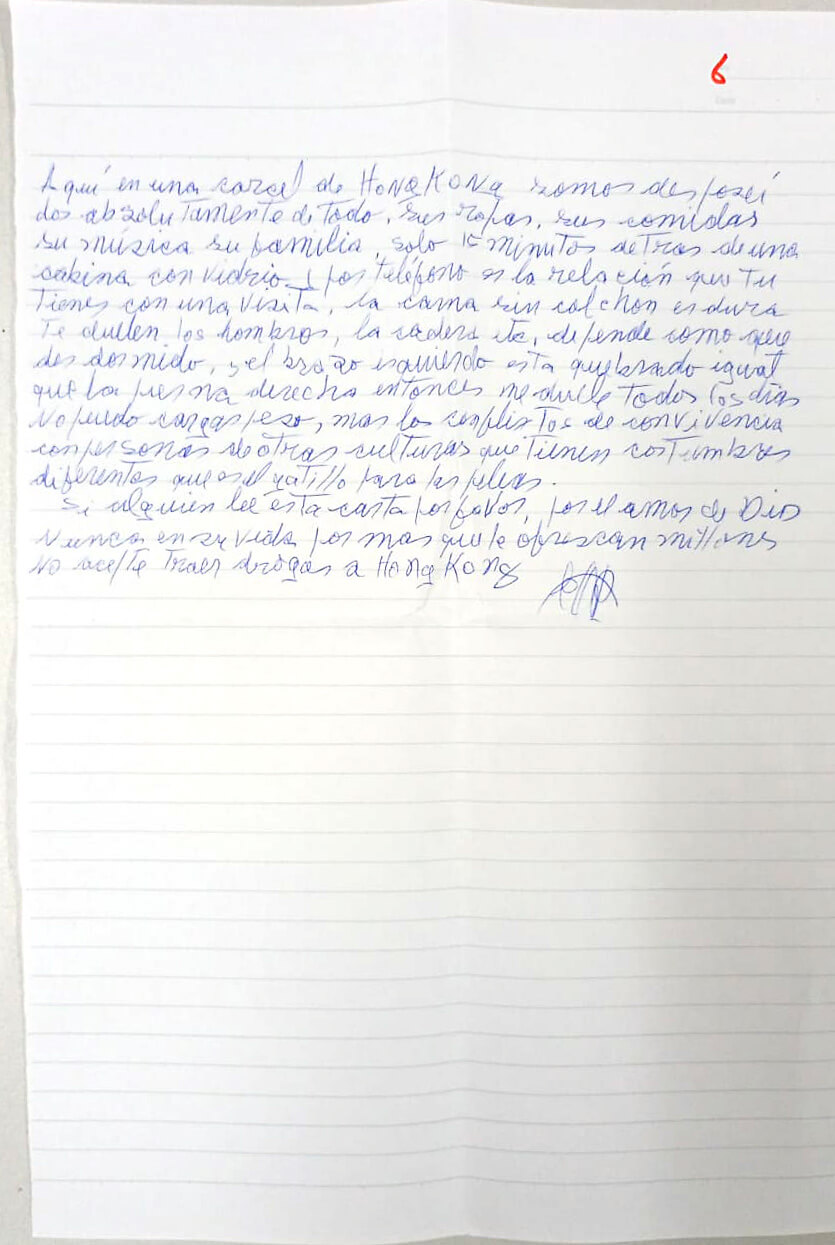 6
Aquí en una carcel de HONG KONG somos desposeí
dos absolutamente de Todo, sus ropas, sus comidas
su música su familia, solo 15 minutos detras de una
cabina con vidrio y por teléfono es la relación que Tu
Tienes con una visita, la cama sin colchon es dura
Te duelen los hombros, la cadera etc, depende como que
des dormido, y el brazo esquierdo esta quebrado igual
que la pierna derecha entonces me duele Todos los dias
No puedo cargar peso, mas los conflictos de convivencia
con personas de otras culturas que Tienen costumbres
diferentes que es el gatillo para las peleas.
Si alguien lee esta carta por favor, por el amor de DIOS
Nunca en su vida por mas que le ofrescan millones
No acepte Traer drogas a Hong Kong